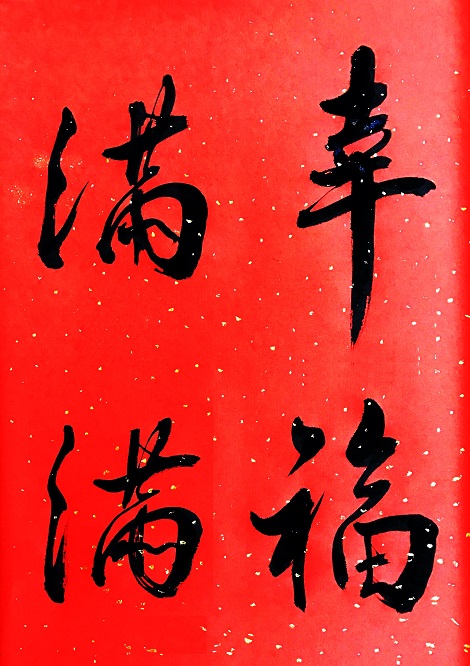 幸福
满满